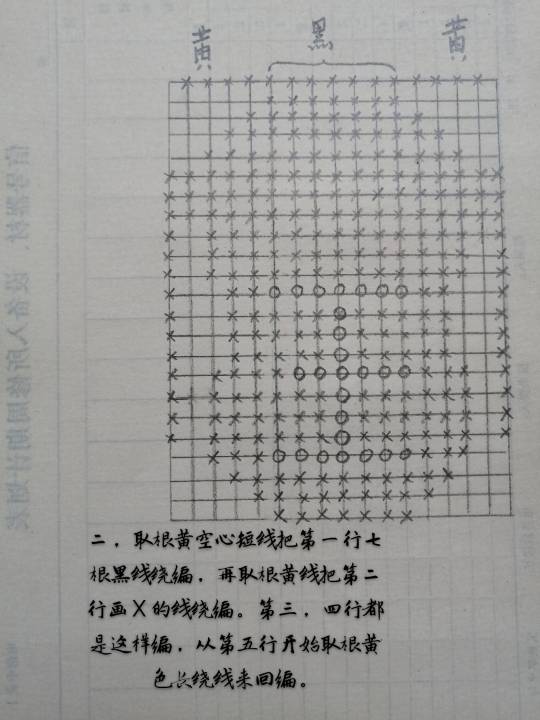 黄 黑 黄
二，取根黄空心短线把第一行七
根黑线绕编，再取根黄线把第二
行画X的线绕编。第三，四行都
是这样编，从第五行开始取根黄
色长绕线来回编。